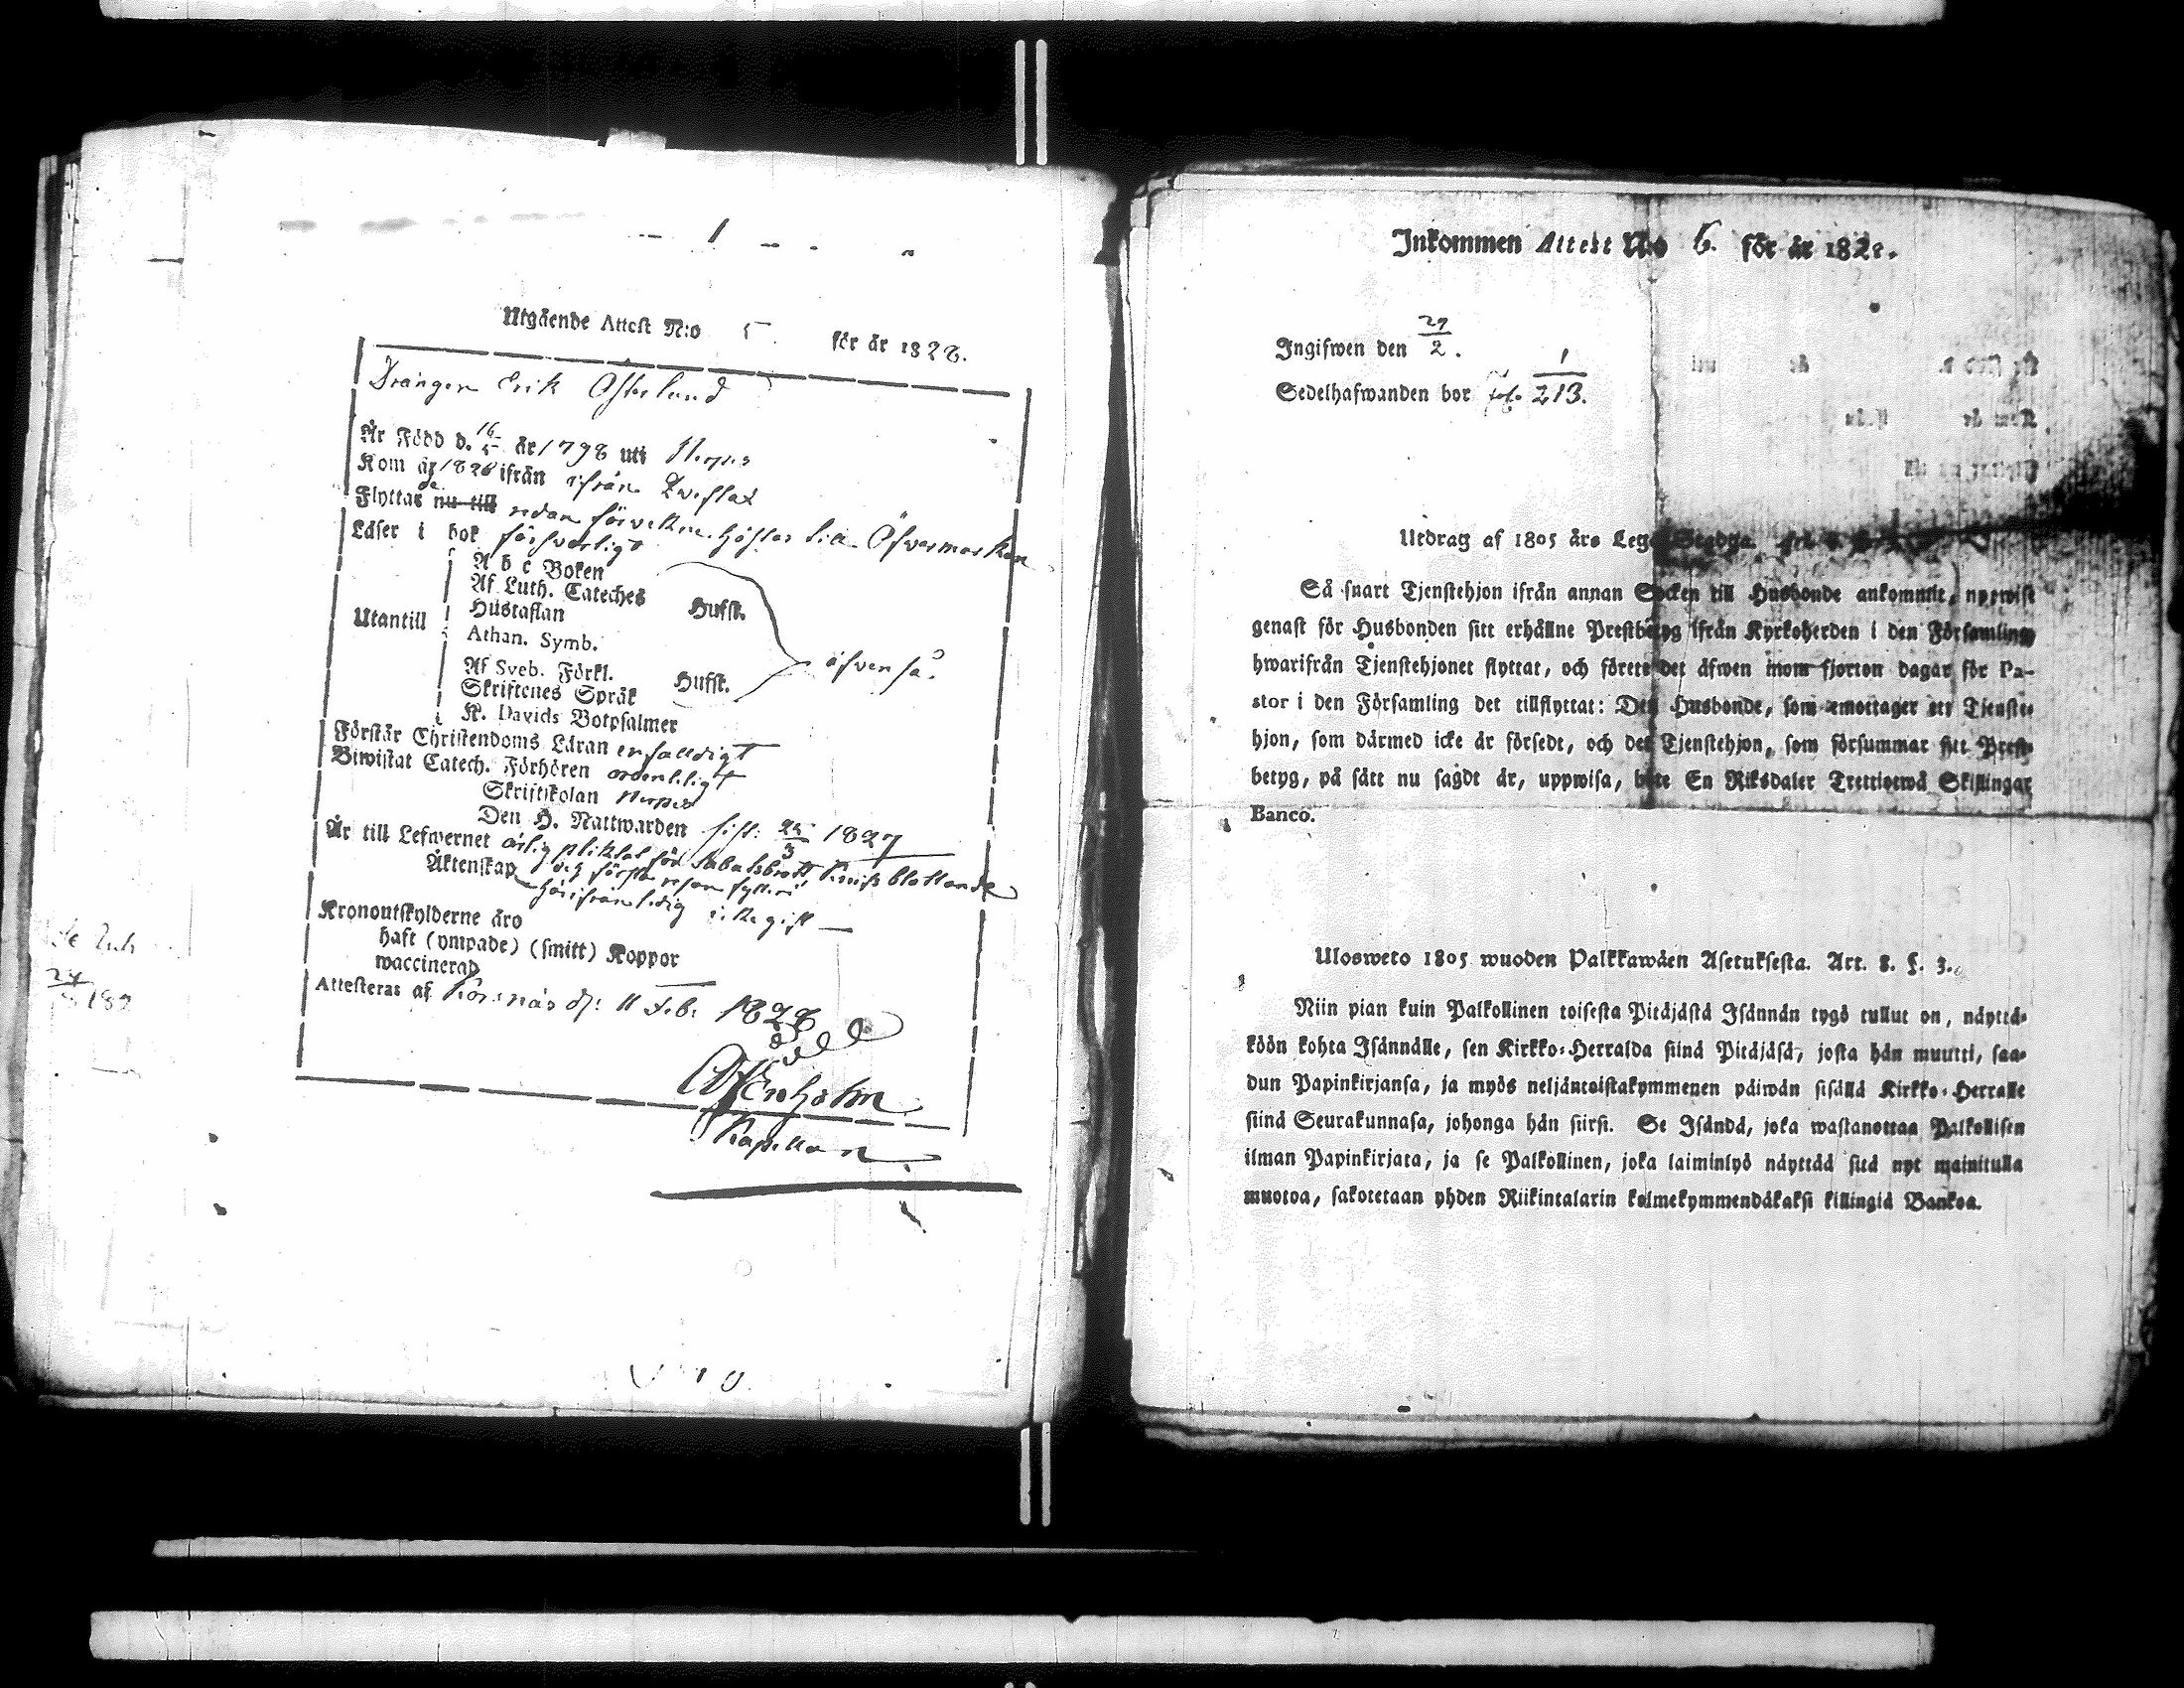 Utgående Attest N:o 5. för år 1828.
Drängen Erik Österlund
Är Född d. 16/5 år 1798 uti Nerpes
Kom år 1826 ifrån ifrån Qveflax
Flyttade nu till redan förvekne höstas till Öfvermarken
Läser i bok försvarligt
Utantill
A b c Boken
Af Luth. Cateches Husst.
Hustaflan
Athan. Symb.
äfven så.
Af Sveb. Förkl.
Skriftenes Språk Husst.
K. Davids Botpsalmer
Förstår Christendoms Läran enfalldigt
Biwistat Catech. Förhören ordentligt
Skriftskolan Nerpes
Den H. Nattwarden sist: 25/3 1827
Är till Lefwernet ärlig pliktat för Sabatsbrott
och första resan fylleri
Äktenskap härifrån ledig icke gift
Kronoutskylderne äro
haft (ympade) (smitt) Koppor
waccinerad
Attesteras af Korsnäs d: 11 Feb: 1828
Kapellan
Inkommen Attest N:o 6. för år 1828.
Ingifwen den 29/2.
Sedelhafwanden bor fol. 1/213.
Utdrag af 1805 års Lego Stadga.
Så snart Tjenstehjon ifrån annan Socken till Husbonde ankommit, uppwise
genast för Husbonden sitt erhållne Prestbetyg ifrån Kyrkoherden i den Församling
hwarifrån Tjenstehjonet flyttat, och förete det äfwen inom fjorton dagar för Pa-
stor i den Församling det tillflyttat: Den Husbonde, som emottager ett Tjenste-
hjon, som därmed icke är försedt, och det Tjenstehjon, som försummar sitt Prest-
betyg, på sätt nu sagdt är, uppwisa, böte En Riksdaler Trettiotwå Skillingar
Banco.
Ulosweto 1805 wuoden Palkkawäen Asetuksesta. Art. 8. §. 3.
Niin pian kuin Palkollinen toisesta Pitäjästä Isännän tygö tullut on, näyttä-
köön kohta Isännälle, sen Kirkko-Herralda siinä Pitäjäsä, josta hän muutti, saa-
dun Papinkirjansa, ja myös neljäntoistakymmenen päiwän sisällä Kirkko-Herralle
siinä Seurakunnasa, johonga hän siirsi. Se Isändä, joka wastanottaa Palkollisen
ilman Papinkirjata, ja se Palkollinen, joka laiminlyö näyttää sitä nyt mainitulla
muotoa, sakotetaan yhden Riikintalarin kolmekymmendäkaksi killingiä Bankoa.